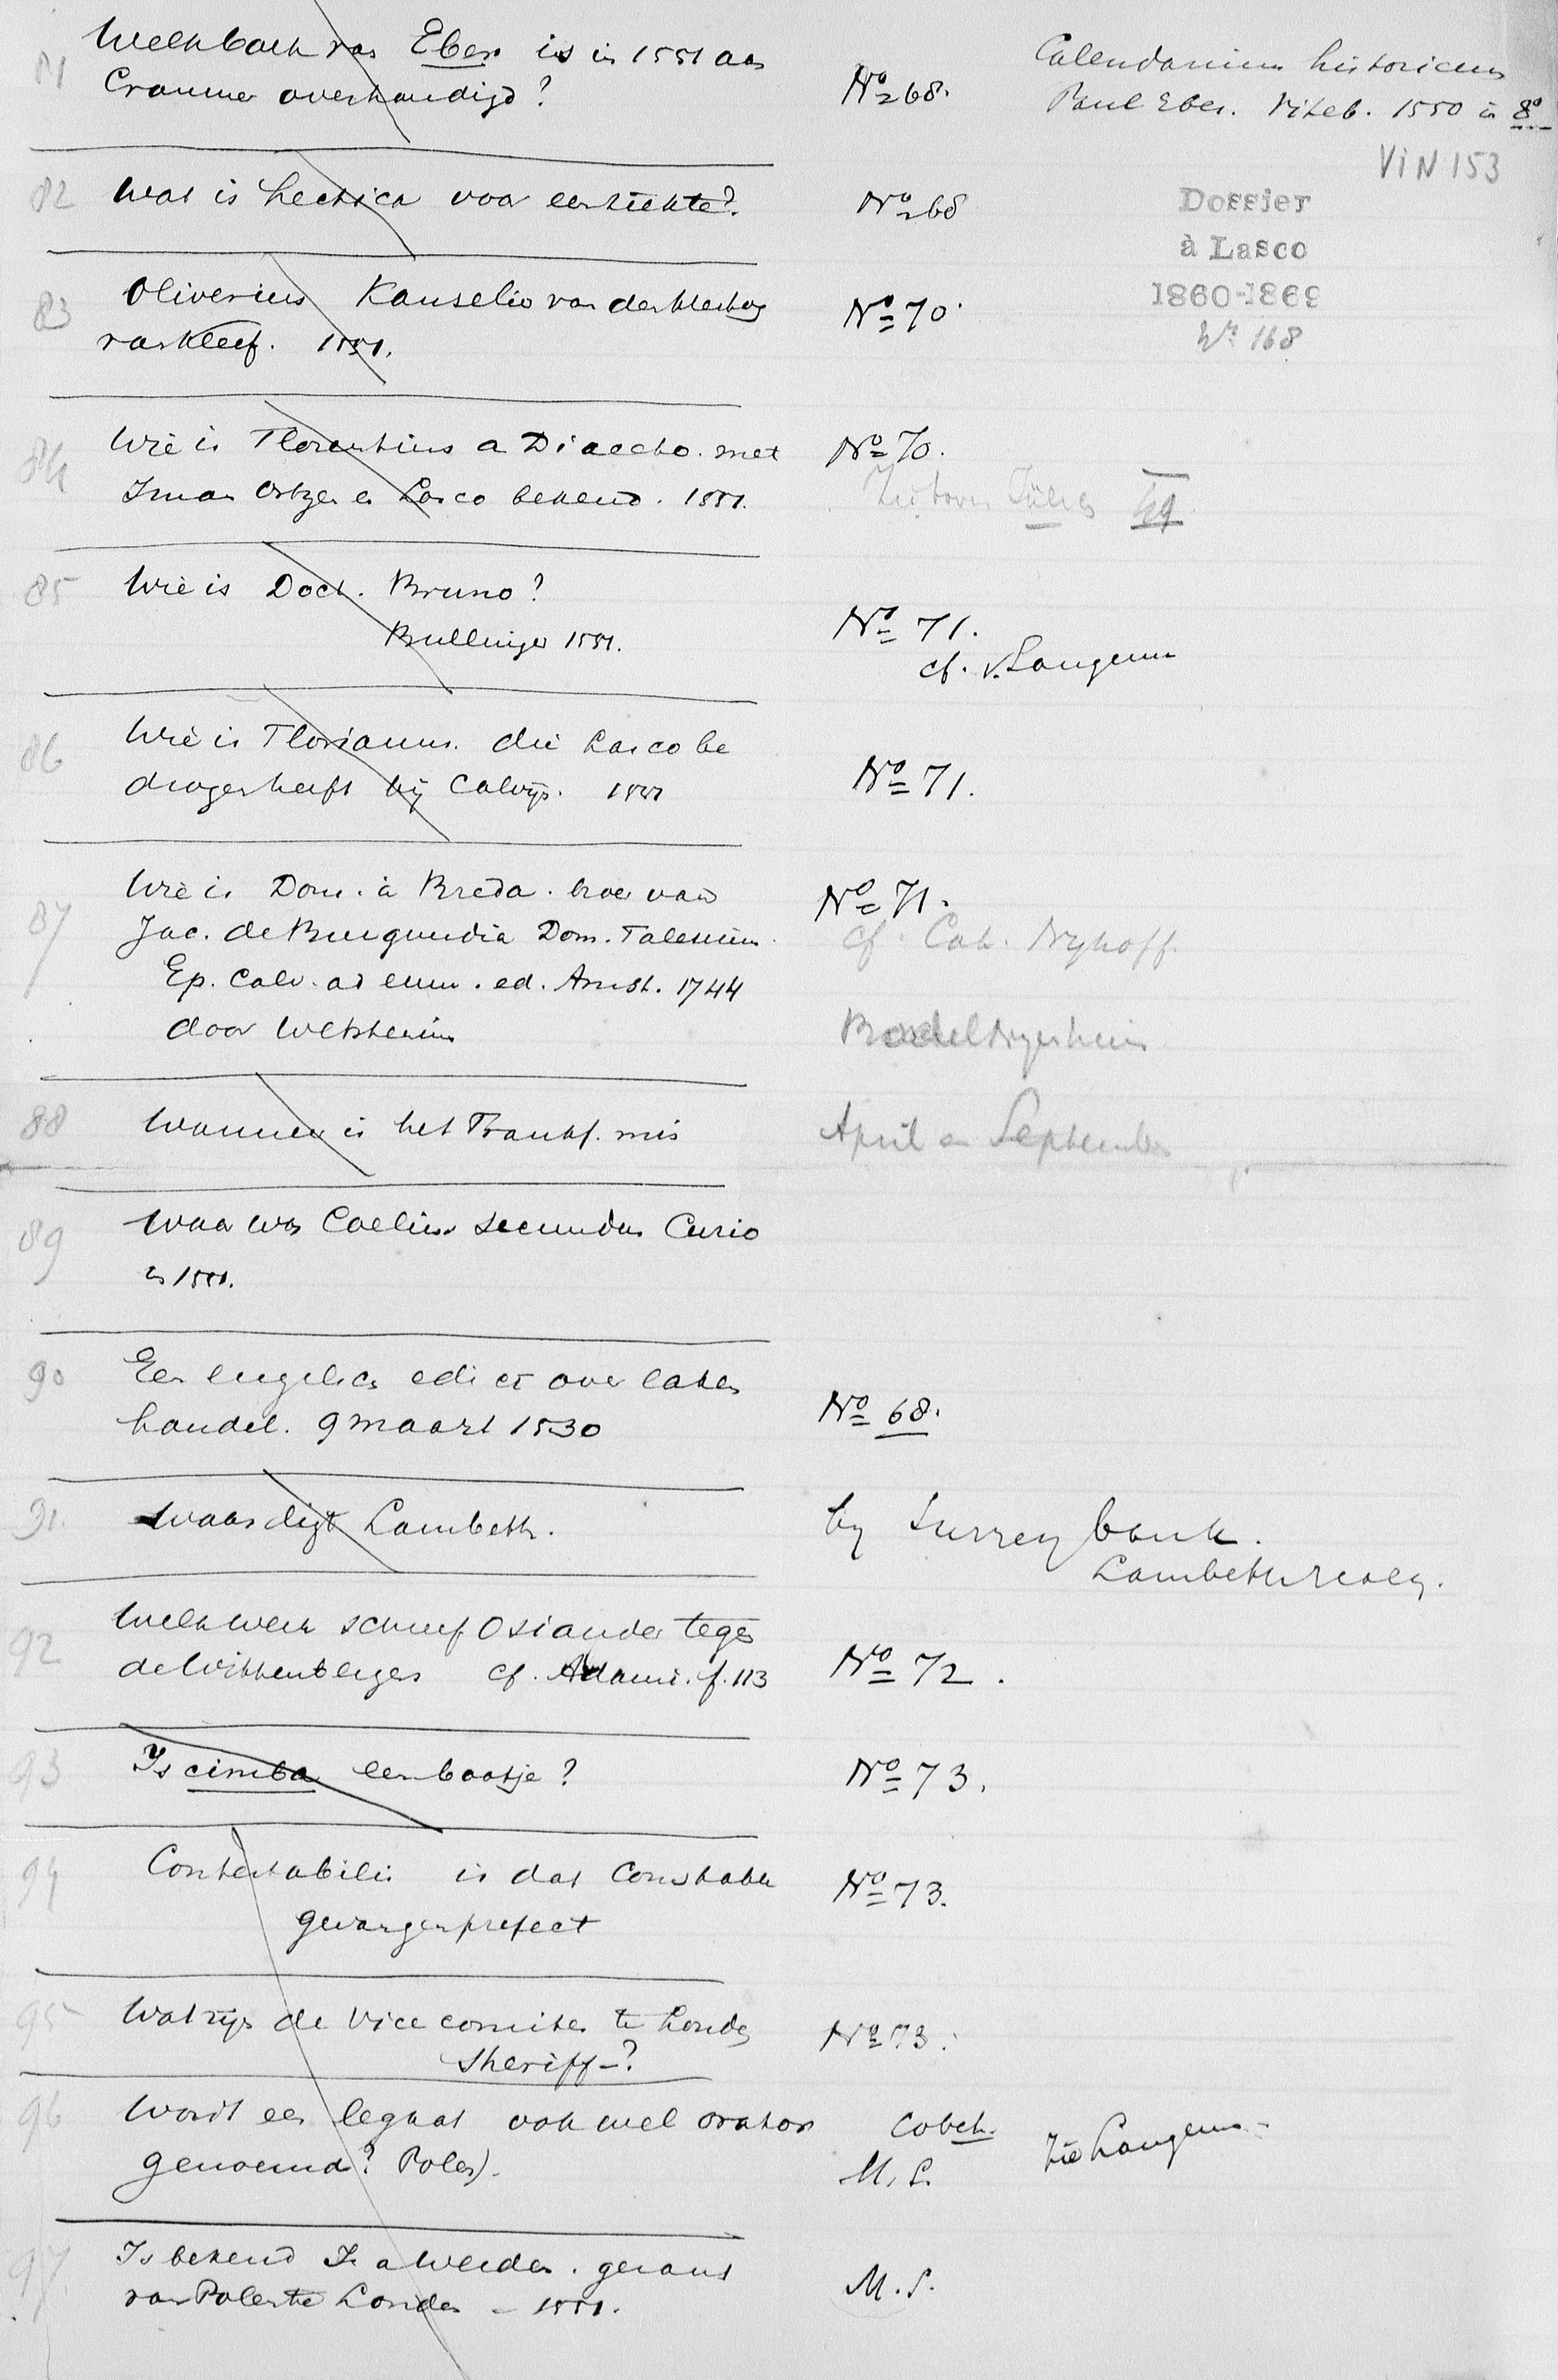 81 Welk boek van Eber is in 1551 aan
Cranmer overhandigd?
No 68.
Calendarium historicum
Paul Eber. Viteb. 1550 in 8o
ViN 153
Dossier
à Lasco
1860-1869
Nr. 168
82 Wat is hectica voor een ziekte?
No 68
83 Oliverius Kanselier van den Hertog
van Kleef. 1551.
No 70.
84 Wie is Florentius a Diaceto. met
en Lasco bekend. 1551.
No 70.
85 Wie is Doct. Bruno?
Bullinger 1551.
No 71.
cf. v. Langeraa
86 Wie is Florianus. die Lasco be
drogen heeft bij Calvijn. 1551
No 71.
87 Wie is Dom. à Breda. broer van
Jac. de Burgundia Dom. Falesium.
Ep. Calv. ad eum. ed. Amst. 1744
door Wetstenium
No 71.
cf. Cat. Nyhoff.
88 Wanneer is het Frankf. mis
April en September
89 Waar was Caelius Secundus Curio
in 1551.
90 Een engelsch edict over laken
handel. 9 maart 1530
No 68.
91. Waar ligt Lambeth.
by Surrey bank.
92 Welk werk schreef Osiander tegen
de Wittenbergers cf. Adami. f. 113
No 72.
93 Is cimba een bootje?
No 73.
94 Contestabilis is dat Constabel
gevangenprefect
No 73.
95 Wat zijn de Vicecomites te Londen
Sheriff-?
No 73.
96 Wordt een legaat ook wel orator
genoemd? Polen).
M. S.
97. Is bekend a Weiden. gezant
van Polen te Londen - 1551.
M. S.